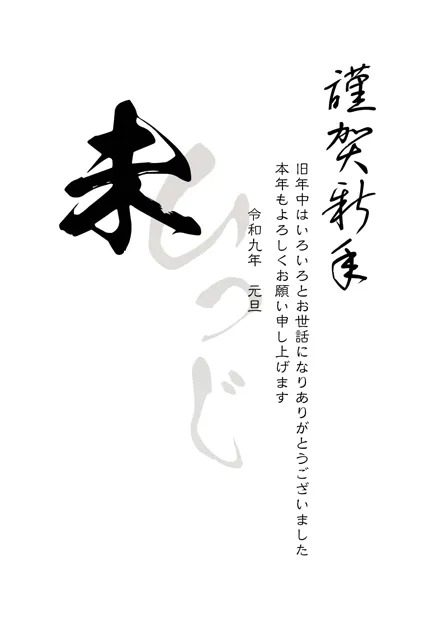 謹賀新年
旧年中はいろいろとお世話になりありがとうございました
本年もよろしくお願い申し上げます
令和九年　元旦
未
ひつじ